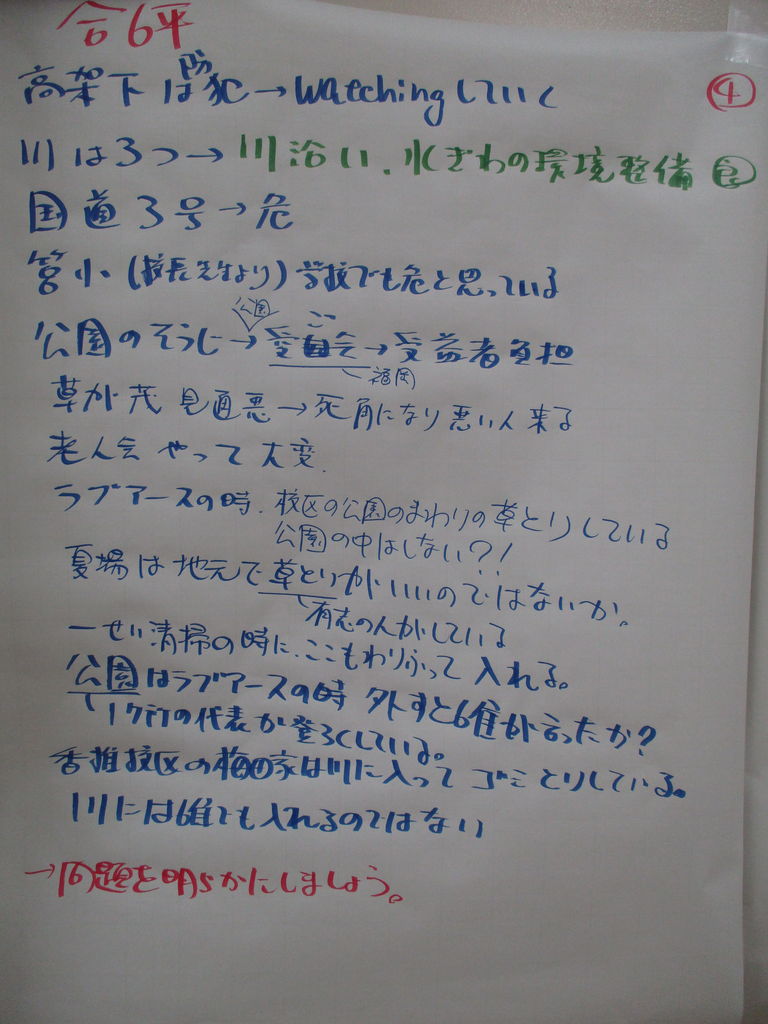 合6平
④
高架下は防犯→Watchingしていく
川は3つ→川沿い、水ぎわの環境整備 良
国道3号→危
筥小(校長先生より)学校でも危と思っている
公園
公園のそうじ→愛ご会→受益者負担
福岡
草が茂 見通悪→死角になり悪い人来る
老人会やって大変
ラブアースの時、校区の公園のまわりの草とりしている
公園の中はしない?!
夏場は地元で草とりがいいのではないか。
有志の人がしている
一せい清掃の時に、ここもわりふって入れる。
公園はラブアースの時外すと誰が言ったか?
1ヶ所の代表が登ろくしている。
香椎校区の家は川に入ってゴミとりしている。
川には誰でも入れるのではない
→問題を明らかにしましょう。